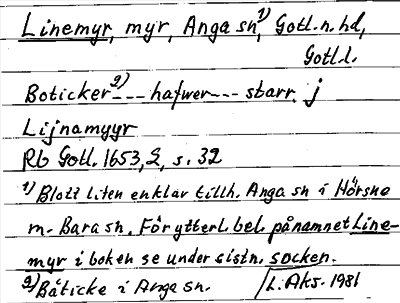 Linemyr, myr, Anga sn,¹⁾ Gotl. n. hd,
Gotl. l.
Boticker²⁾--- hafwer--- starr. j
Lijnamyyr
Rb Gotl. 1653,2, s. 32
¹⁾ Blott liten enklav tillh. Anga sn i Hörsne
m. Bara sn. För ytterl. bel. på namnet Line-
myr i boken se under sistn. socken.
²⁾ Båticke i Anga sn. L. Aks. 1981